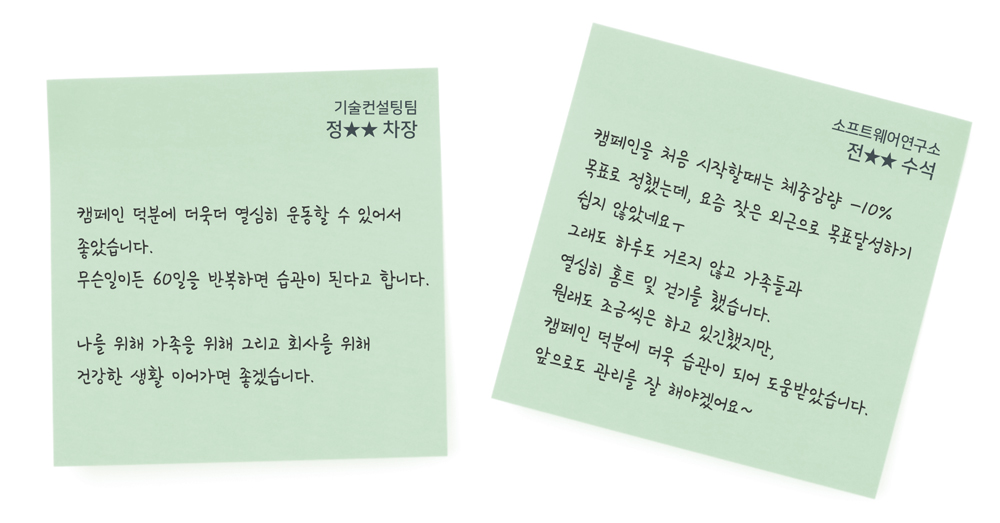 기술컨설팅팀
정★★ 차장
캠페인 덕분에 더욱더 열심히 운동할 수 있어서
좋았습니다.
무슨일이든 60일을 반복하면 습관이 된다고 합니다.
나를 위해 가족을 위해 그리고 회사를 위해
건강한 생활 이어가면 좋겠습니다.
소프트웨어연구소
전★★ 수석
캠페인을 처음 시작할때는 체중감량 -10%
목표로 정했는데, 요즘 잦은 외근으로 목표달성하기
쉽지 않았네요ㅜ
그래도 하루도 거르지 않고 가족들과
열심히 홈트 및 걷기를 했습니다.
원래도 조금씩은 하고 있긴했지만,
캠페인 덕분에 더욱 습관이 되어 도움받았습니다.
앞으로도 관리를 잘 해야겠어요~